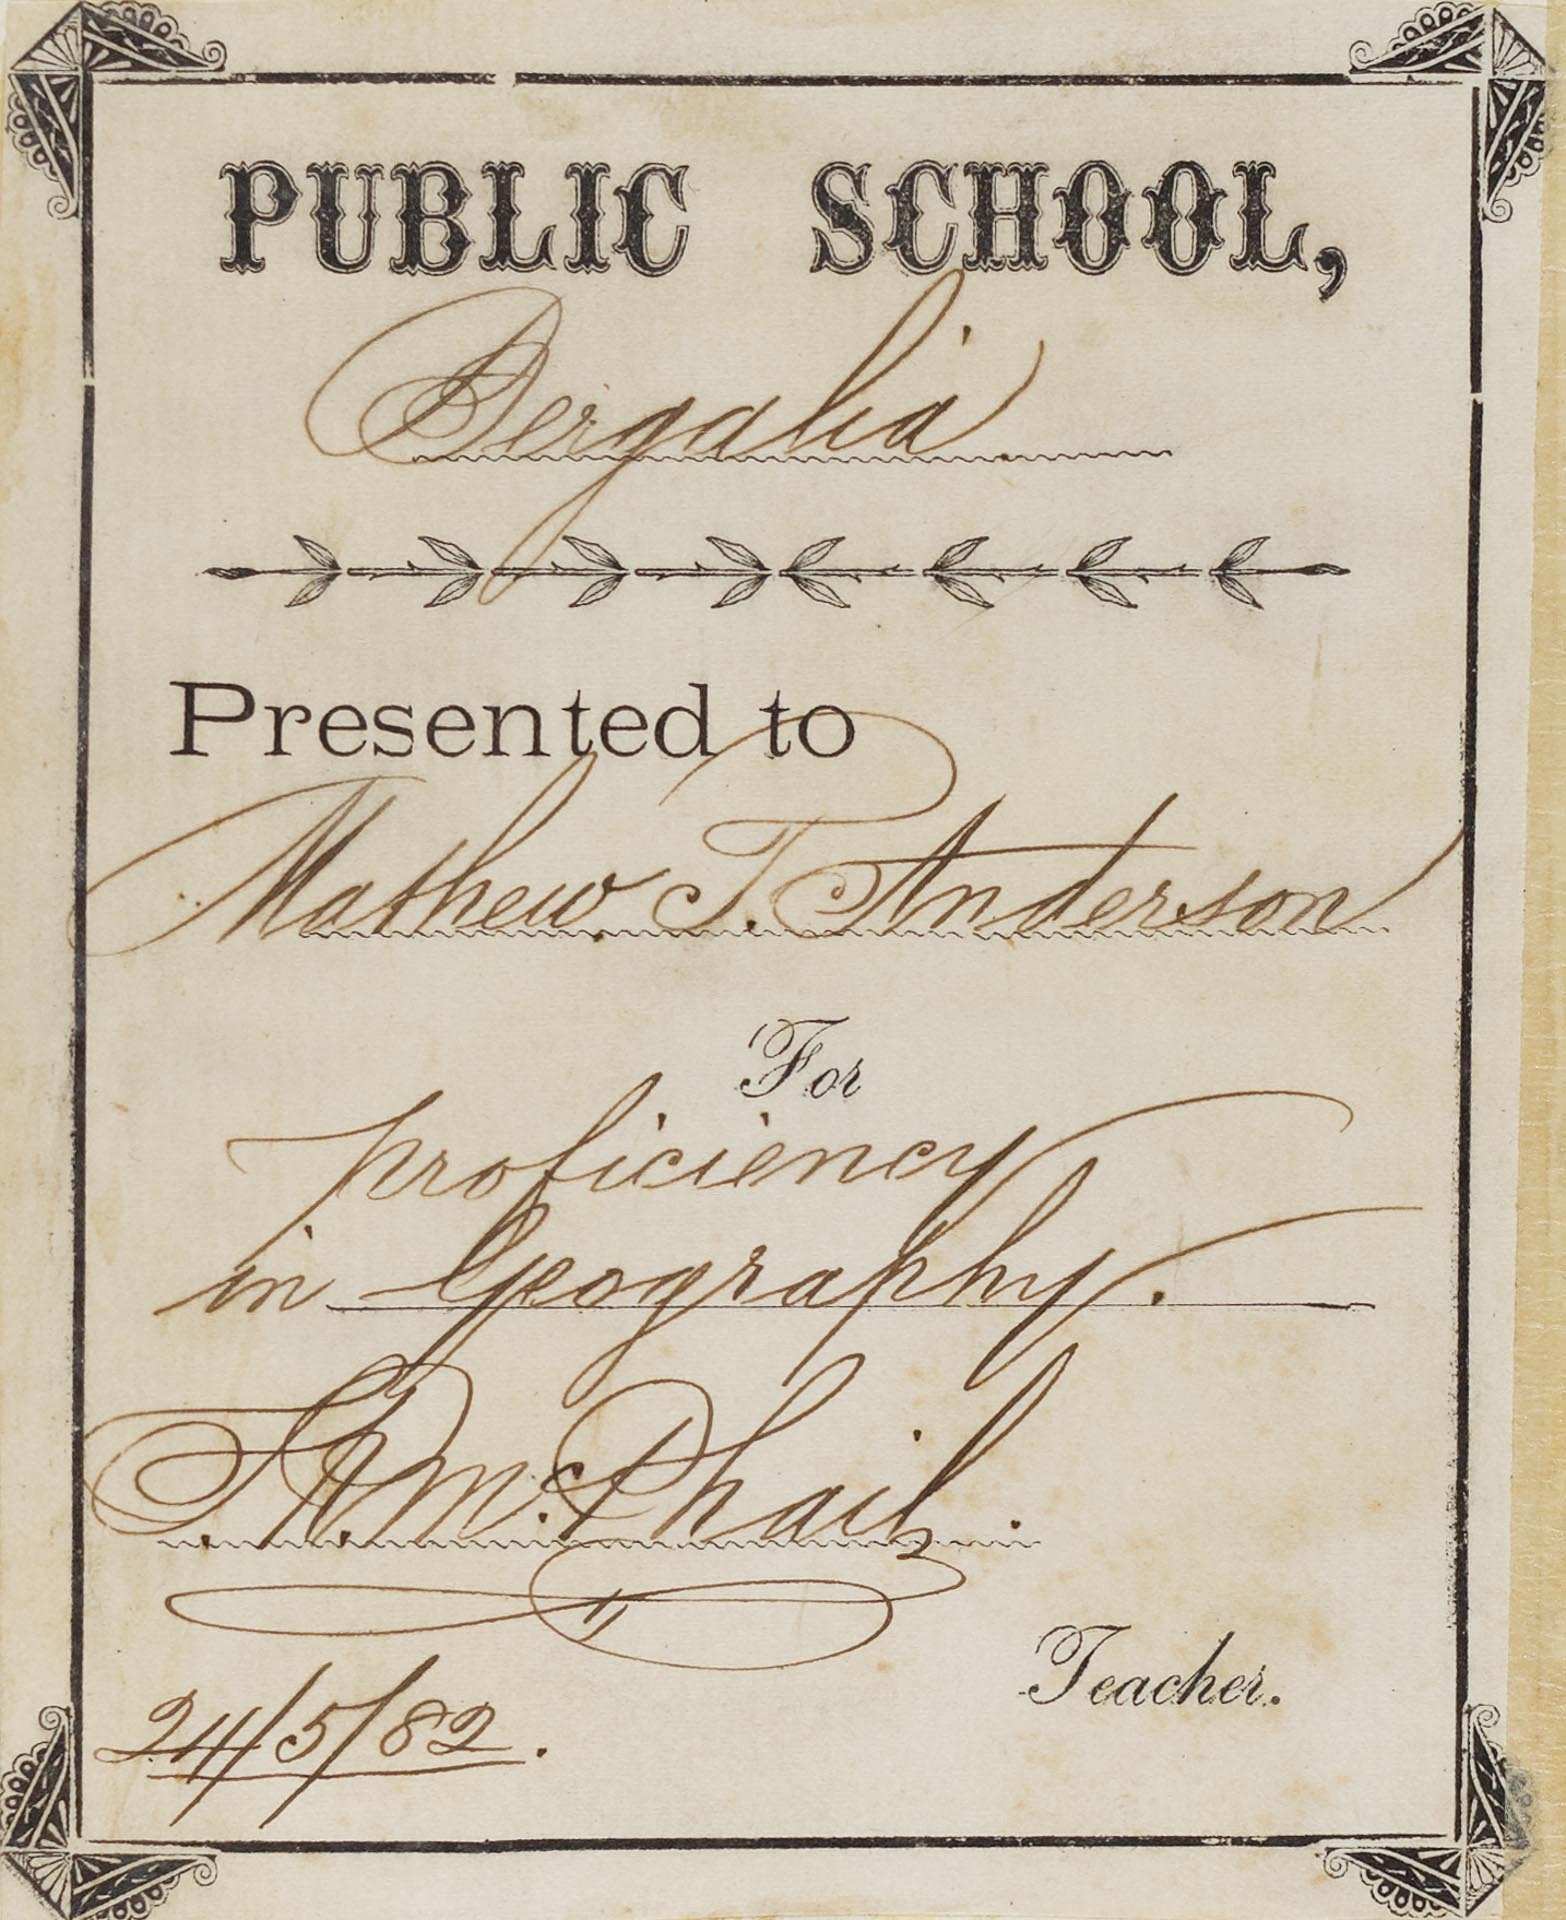 PUBLIC SCHOOL,
Bergalia
Presented to
Mathew T. Anderson
For
proficiency
in Geography.
J. H. McPhail.
Teacher.
24/5/82.